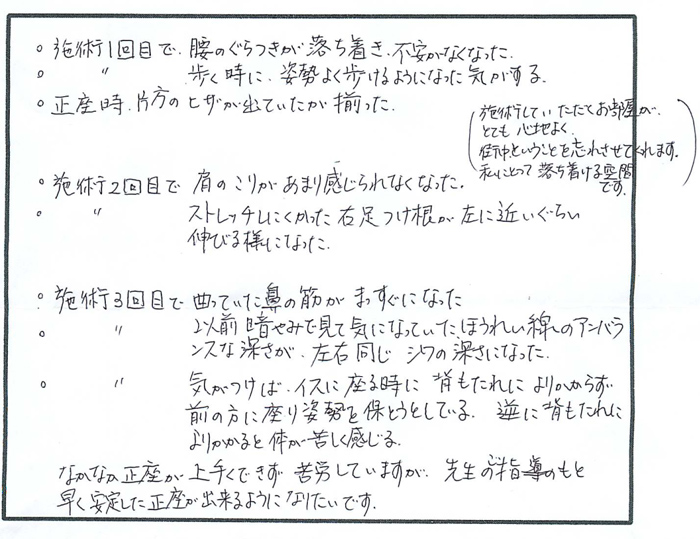 ○ 施術1回目で、腰のぐらつきが落ち着き、不安がなくなった。
○ 〃 歩く時に、姿勢よく歩けるようになった気がする。
○ 正座時、片方のヒザが出ていたが揃った。
(施術していただくお部屋が、
とても心地よく、
街中ということを忘れさせてくれます。
私にとって落ち着ける空間
です。)
○ 施術2回目で 肩のこりがあまり感じられなくなった。
○ 〃 ストレッチしにくかった右足つけ根が左に近いぐらい
伸びる様になった。
○ 施術3回目で 曲っていた鼻の筋がまっすぐになった
○ 〃 以前
見て気になっていた、ほうれい線のアンバラ
ンスな深さが、左右同じ シワの深さになった。
○ 〃 気がつけば、イスに座る時に 背もたれに よりかからず
前の方に座り姿勢を保とうとしている。 逆に背もたれに
よりかかると体が苦しく感じる。
なかなか正座が上手くできず 苦労していますが、先生のご指導のもと
早く安定した正座が出来るようになりたいです。